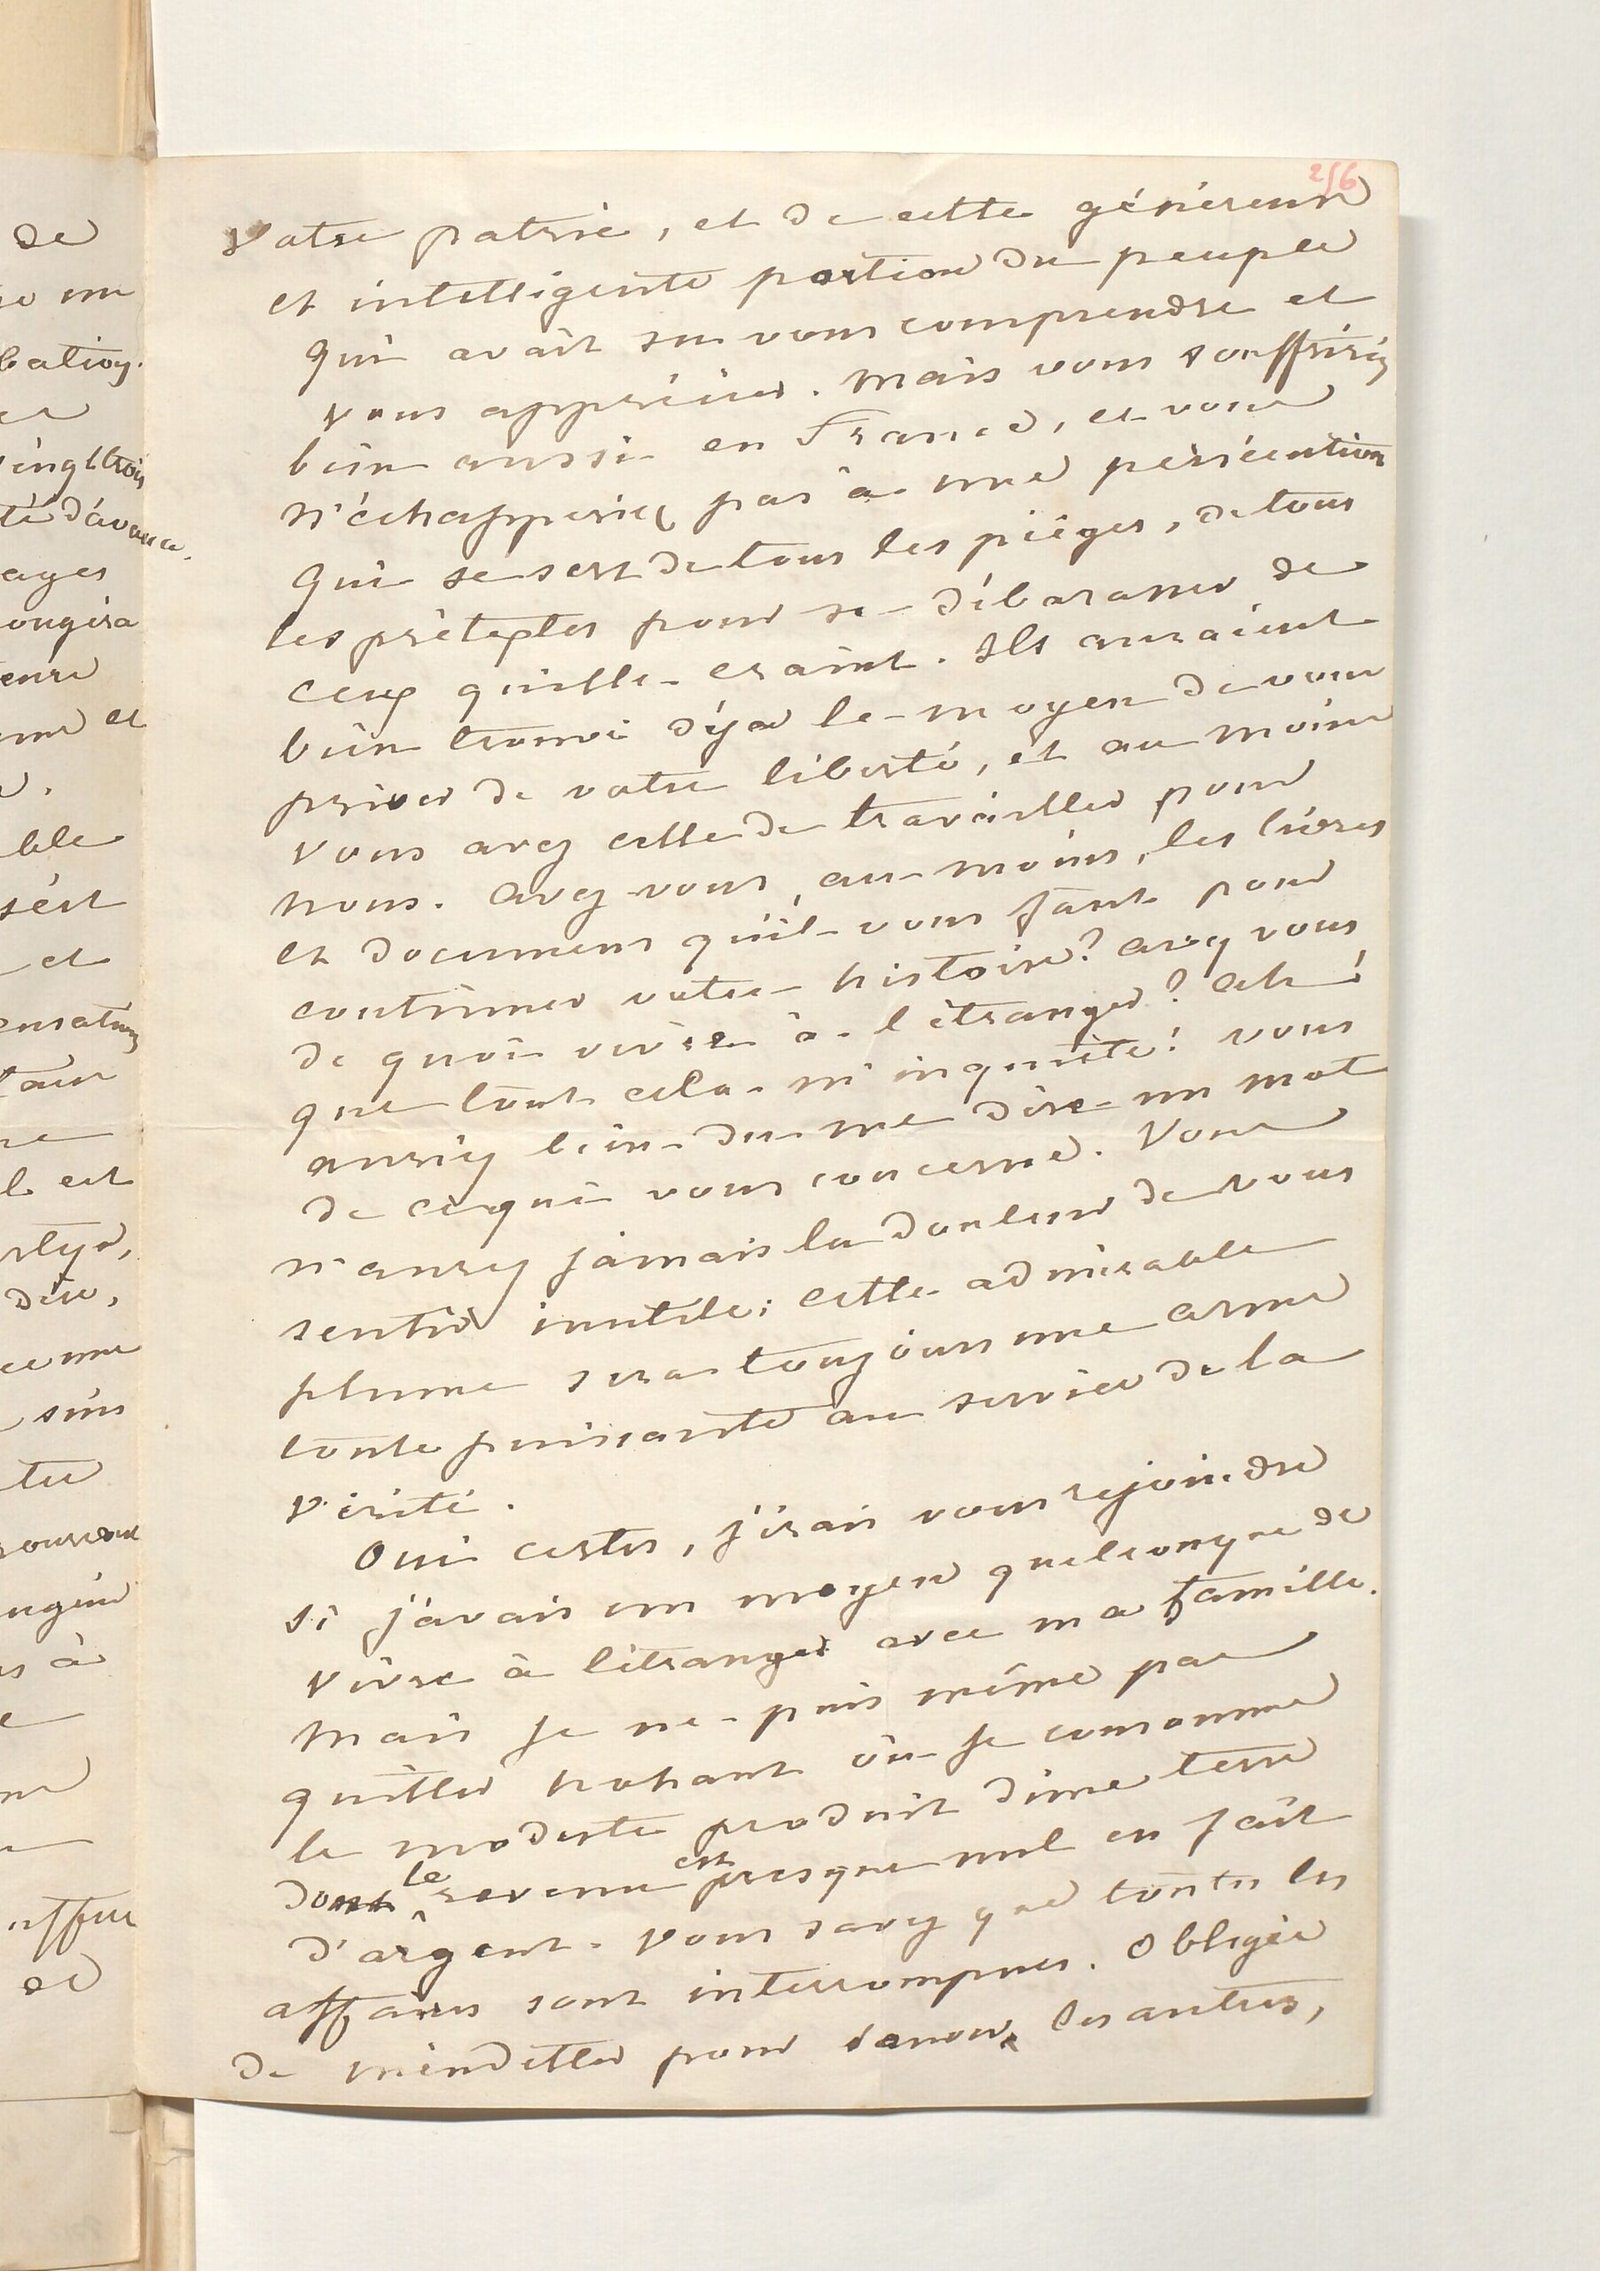 256
votre patrie, et de cette généreuse
et intelligente portion du peuple
qui avait su vous comprendre et
vous apprécier. Mais vous souffririez
bien aussi en France, et vous
n'échapperiez pas à une persécution
qui se sert de tous les pièges, de tous
les prétextes pour se débarasser de
ceux qu'elle craint. Ils auraient
bien trouvé déjà le moyen de vous
priver de votre liberté, et au moins
vous avez celle de travailler pour
nous. Avez vous, au moins, les livres
et documens qu'il vous faut pour
continuer votre histoire? avez vous
de quoi vivre à l'étranger? Ah!
que tout cela m'inquiète! vous
auriez bien du me dire un mot
de ce qui vous concerne. Vous
n'aurez jamais la douleur de vous
sentir inutile; cette admirable
plume sera toujours une arme
toute puissante au service de la
vérité.
Oui certes, j'irais vous rejoindre
si j'avais un moyen quelconque de
vivre à l'étranger avec ma famille.
Mais je ne puis même pas
quitter Nohant où je consomme
le modeste produit d'une terre
dont le revenu est presque nul en fait
d'argent. Vous savez que toutes les
affaires sont interrompues. Obligée
de m'endetter pour sauver les autres,
de
bation.
vingt trois
té d'avance.
ages
ongera
et
ble
s'est
et
l est
dire,
sins
à